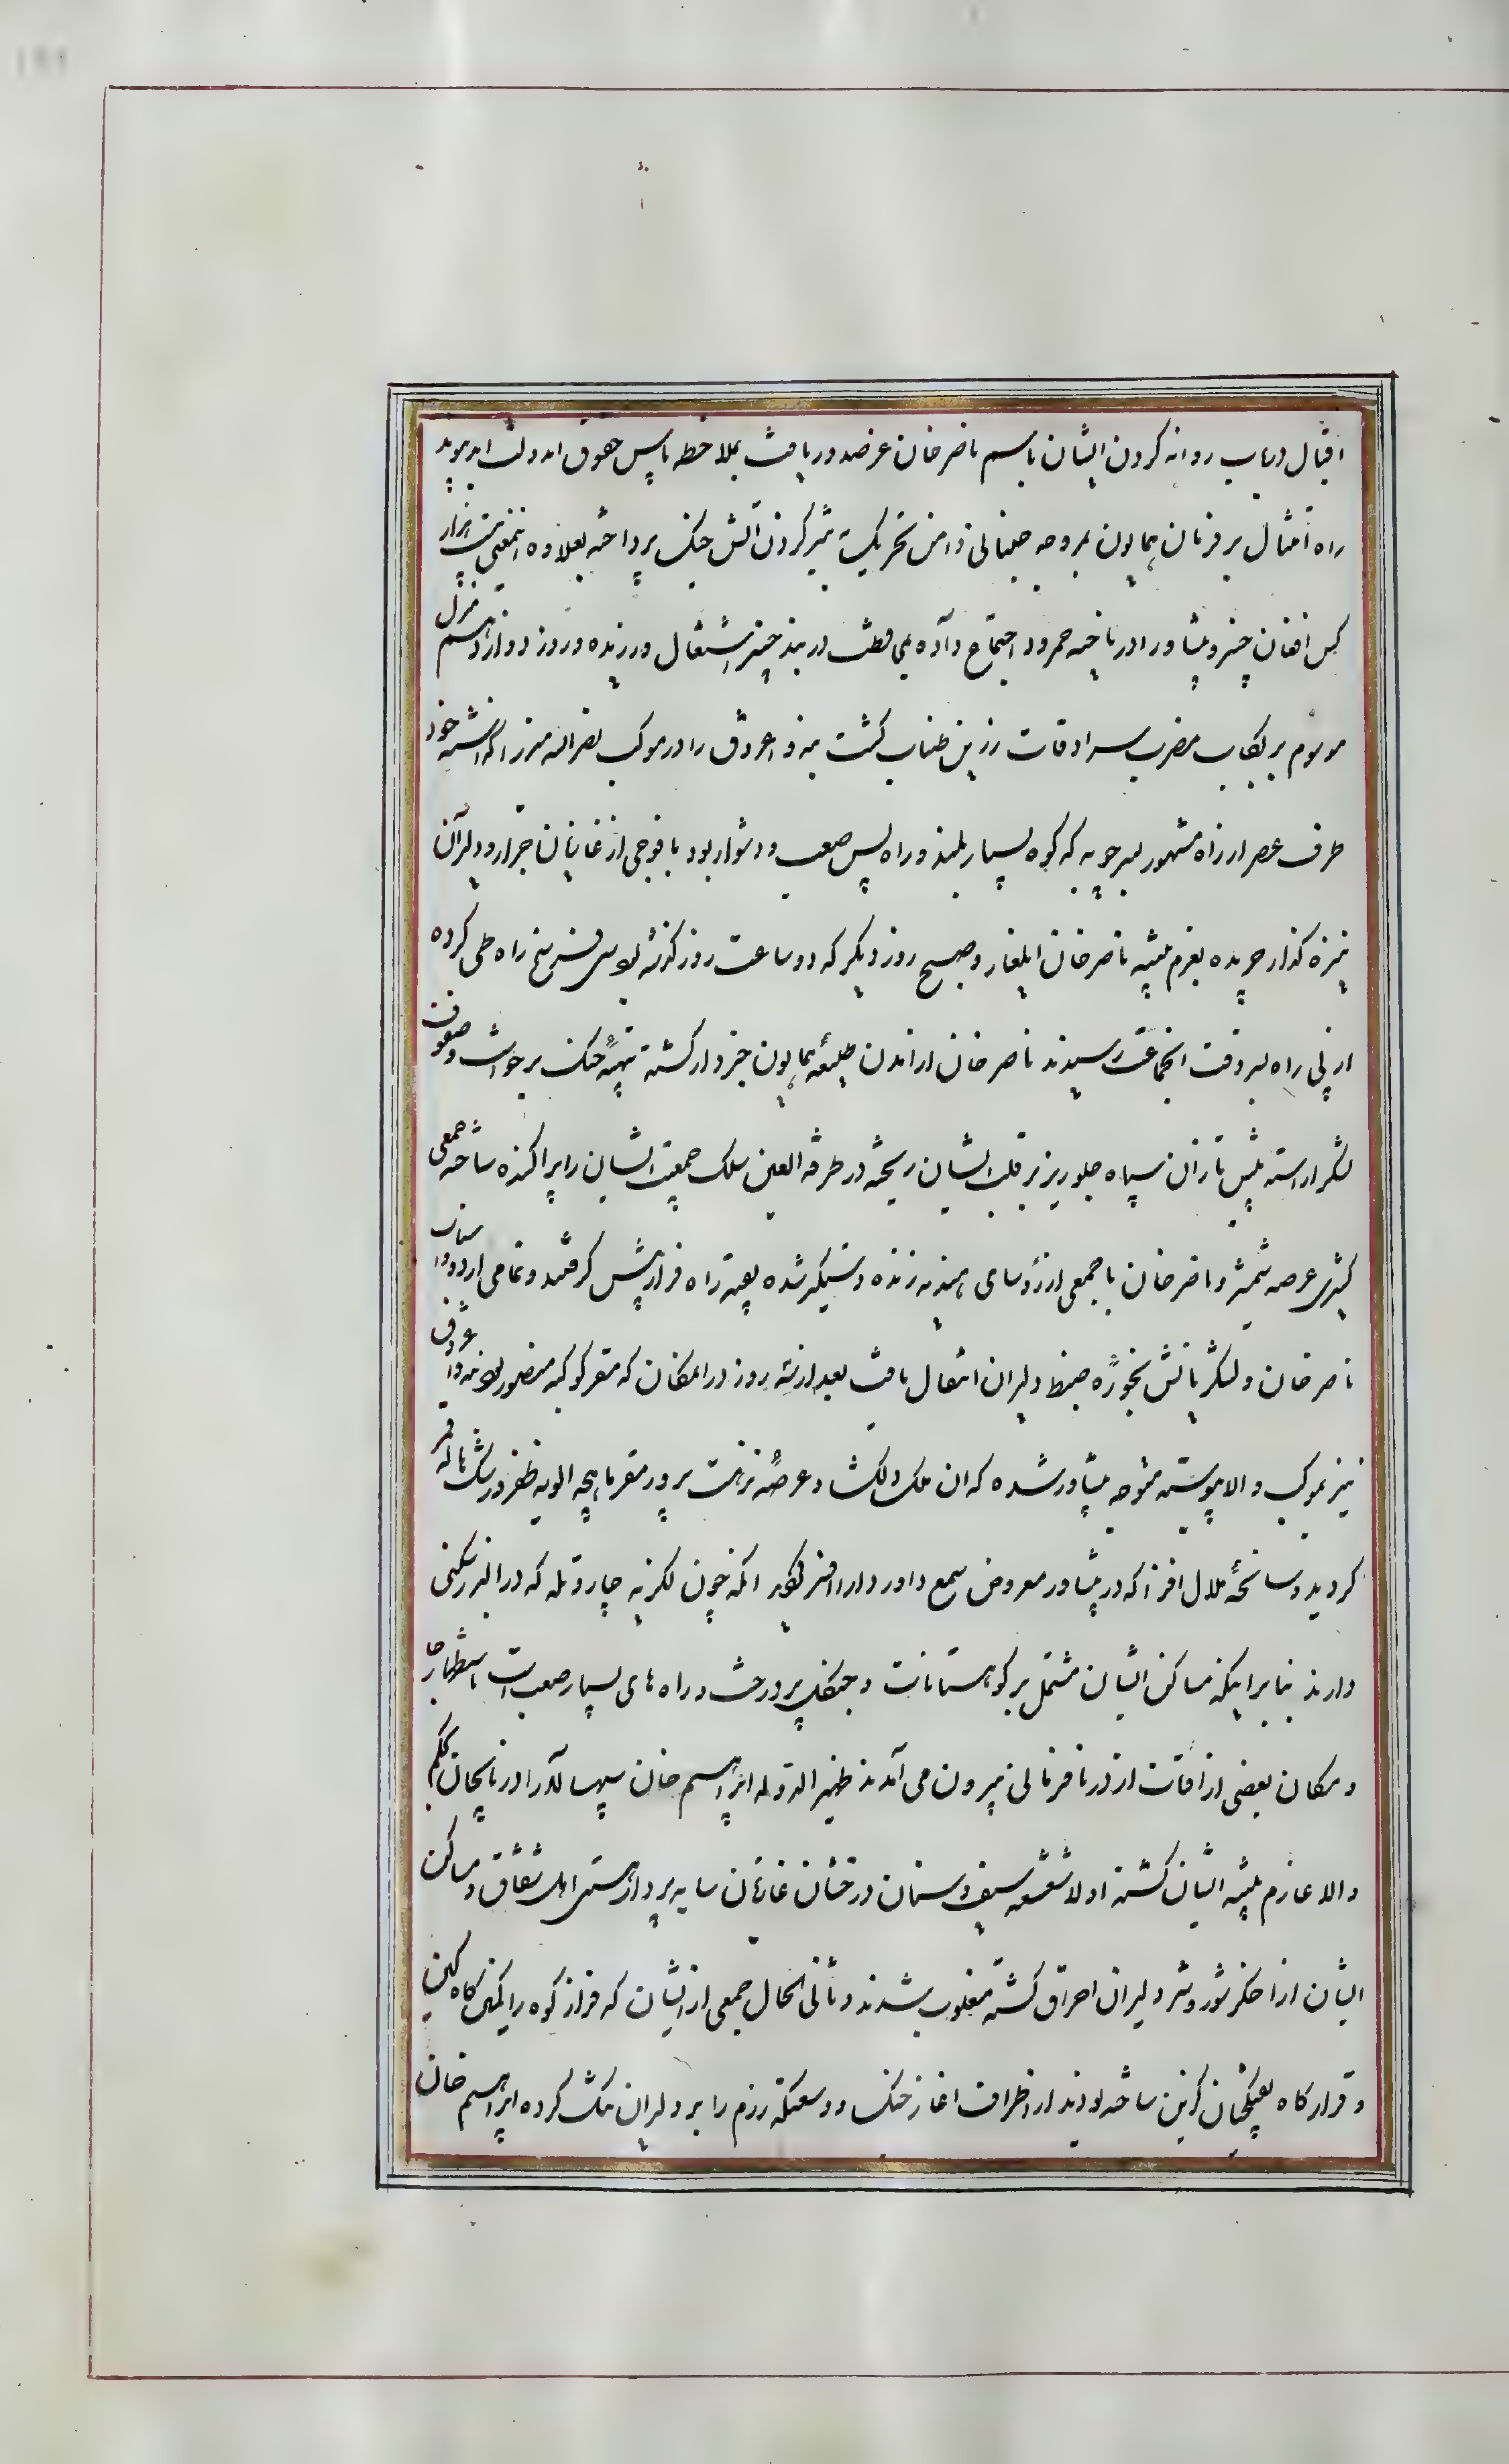 اقبال درباب روانه کردن ایشان باسم ناصر خان عرضه دریافت بملاحظه پاس حقوق اندولت ابد پیوند
راه امتثال بر فرمان همایون بمروحه جنبانی دامن تحریک تیز کردن آتش جنک پرداخته بعلاوه اینمعنی بیست هزار
کس افغان خیبر و پیشاور را در ناحیه جمرود اجتماع داده بمحافظت دربند خیبر اشتغال ورزیده و روز دوازدهم منزل
موسوم بریکاب مضرب سرادقات زرین طناب کشت بنه و اعروق را در موکب نصرالله میرزا گذاشته خود
طرف عصر از راه مشهور بسر چوبه که کوه بسیار بلند و راه بس صعب و دشوار بود با فوجی از غازیان جرار و دلیران
نیزه کذار جریده بعزم تنبیه ناصر خان ایلغار و صبح روز دیکر که دو ساعت روز کذشته بود سی فرسخ راه طی کرده
از پی راه بسر وقت انجماعت رسیدند ناصر خان از امدن طلیعه همایون خبردار کشته تهیهٔ جنک برخواست و صفوف
لشکر اراسته پیش تازان سپاه جلوریز بر قلب ایشان ریخته در طرفه العین سلک جمعیت ایشان را پراکنده ساخته جمعی
کثیری عرصه شمشیر و ناصر خان با جمعی از رؤسای هندیه زنده دستگیر شده بقیه راه فرار پیش کرفتند و تمامی اردو و اسباب
ناصر خان و لشکریانش بحوزهٔ ضبط دلیران انتقال یافت بعد از سه روز در المکان که مقر کوکبه منصور بود بنه و اغروق
نیز بموکب والا پیوسته متوجه پیشاور شده که ان ملک دلکشا و عرصهٔ نزهت پرور مقر ماهچه الویه ظفر و رشک هاله قمر
کردید و سانحهٔ ملال افزا که در پیشاور معروض سمع داور دارا افسر کردید انکه چون لکزیه جار و تله که در البرز سکنی
دارند بنا بر اینکه مساکن ایشان مشتمل بر کوهستانات و جنکل پر درخت و راه های بسیار صعب است باستظهار جا
و مکان بعضی از اوقات از در نافرمانی بیرون می آمدند ظهیر الدوله ابراهیم خان سپهسالار را در بایجان بحکم
والا عازم تنبیه ایشان کشته اولا شعشعه سیف و سنان درخشان غازیان سایه پرداز هستی اهل شقاق و مساکن
ایشان از اخکر شور و شر دلیران احراق کشته مغلوب شدند و ثانی الحال جمعی از ایشان که فراز کوه را کمین کاه کین
و قرار کاه تفنکچیان کزین ساخته بودند از اطراف اغاز جنک و وسعتکه رزم را بر دلیران تنک کرده ابراهیم خان